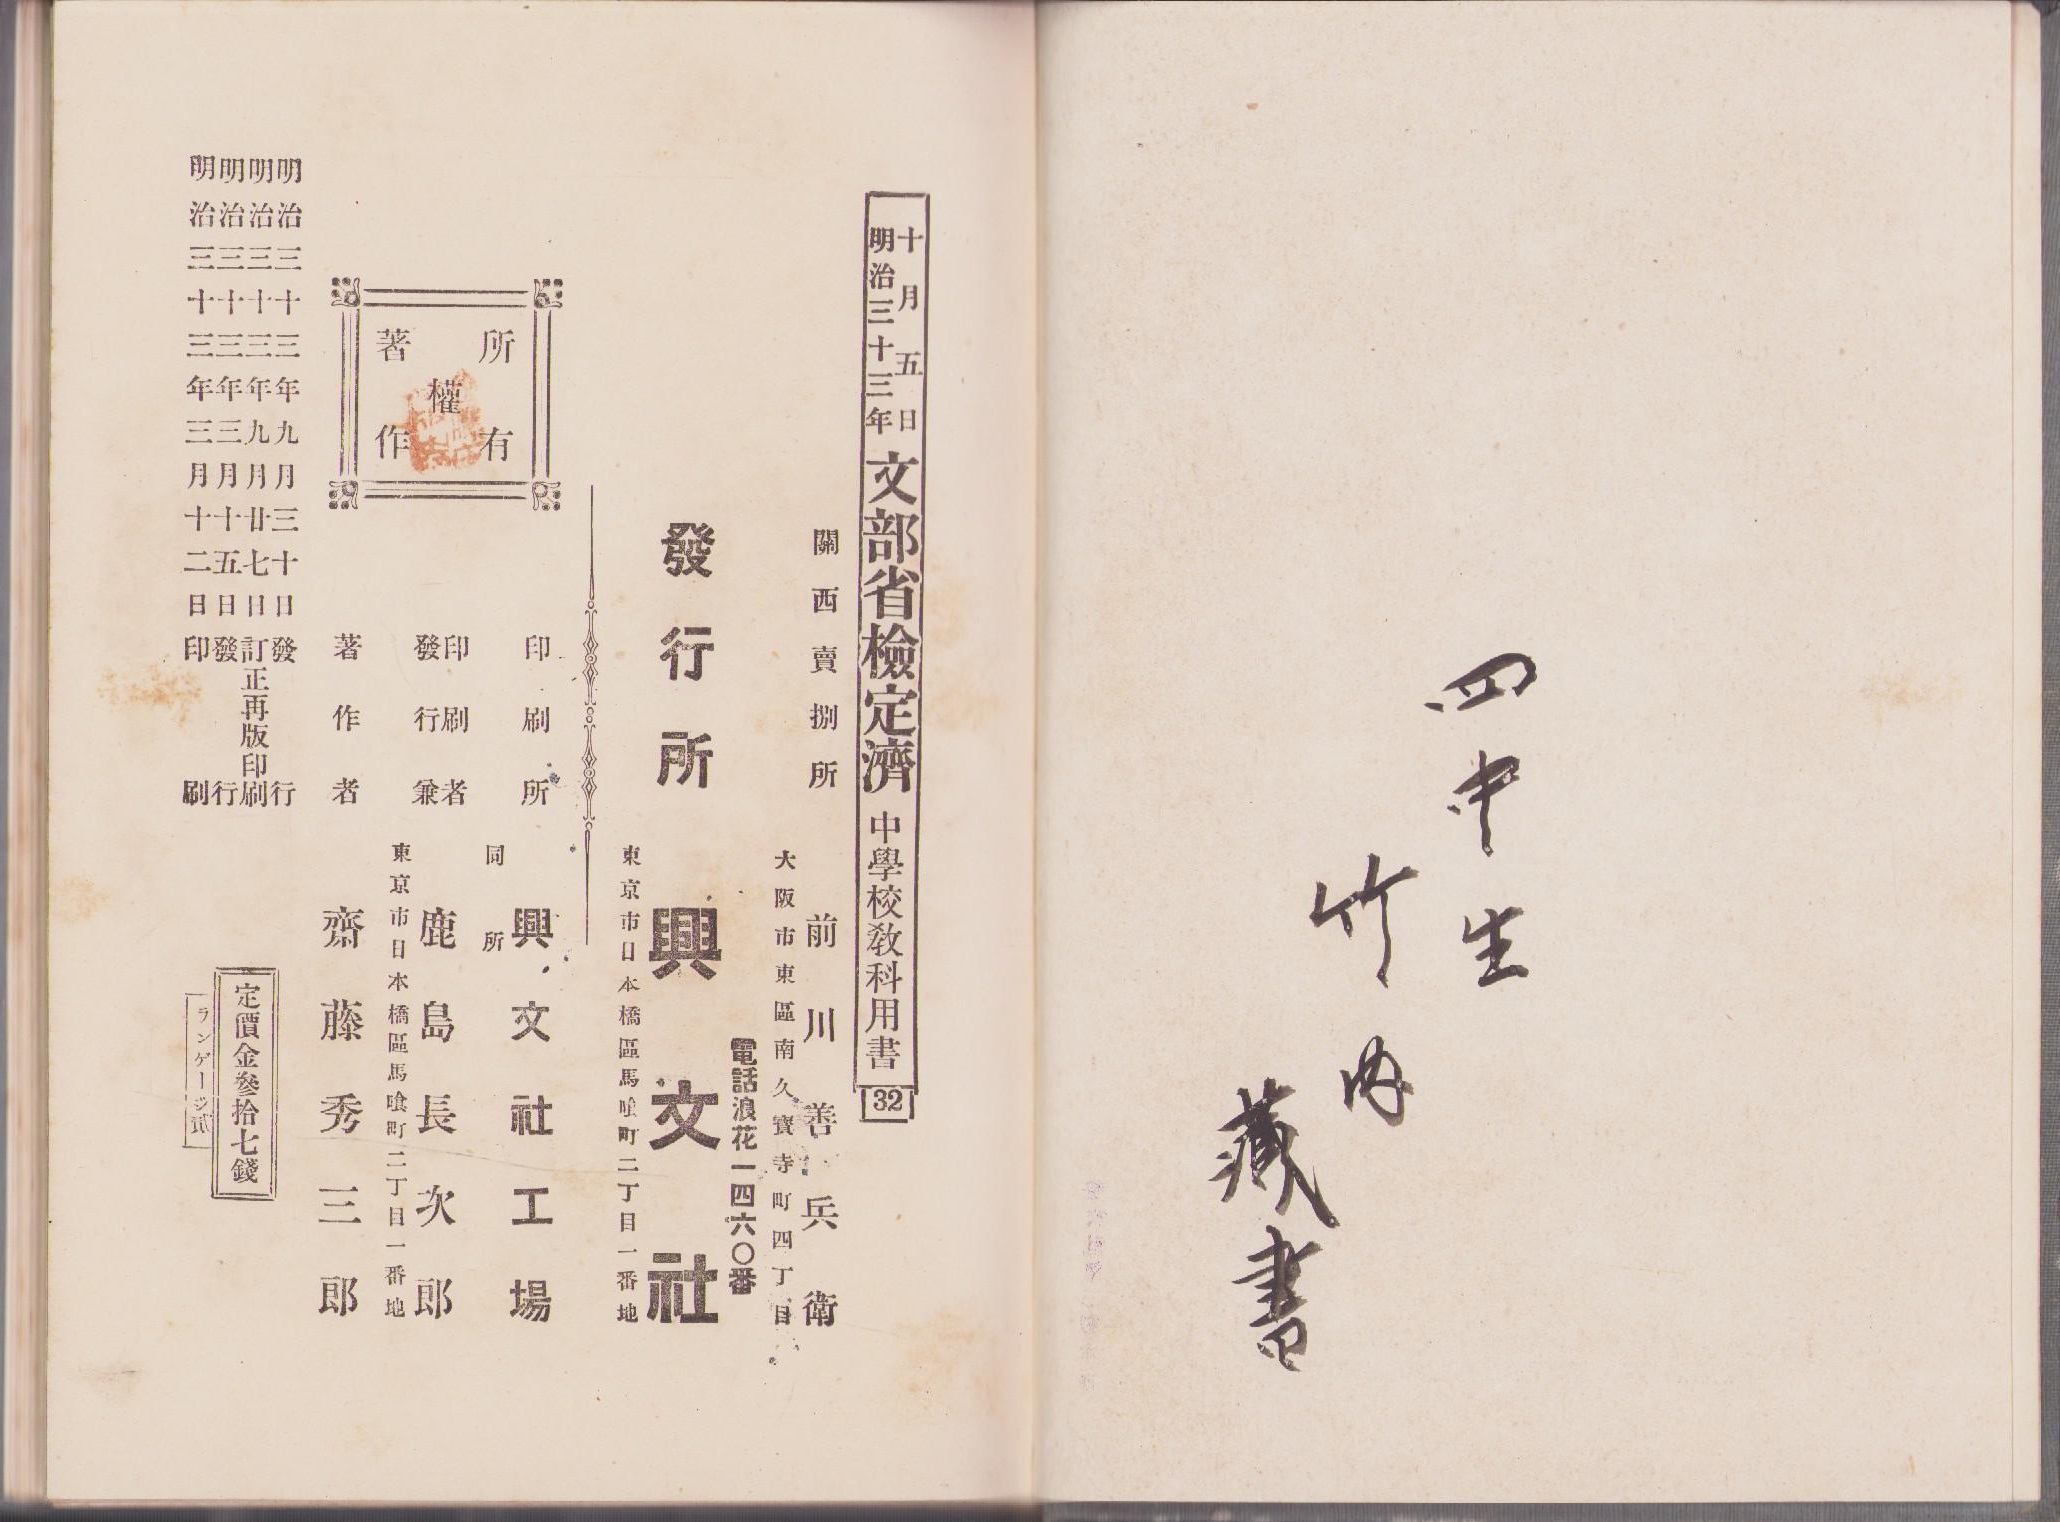 四中生
竹内
藏書
十月五日
明治三十三年
文部省檢定濟
中學校敎科用書
32
關西賣捌所
前川善兵衛
大阪市東區南久寶寺町四丁目
電話浪花一四六〇番
發行所
興文社
東京市日本橋區馬喰町二丁目一番地
印刷所
興文社工場
同所
印刷者
發行兼
鹿島長次郎
東京市日本橋區馬喰町二丁目一番地
著作者
齋藤秀三郎
所有
權
著作
明治三十三年九月三十日發行
明治三十三年九月廿七日訂正再版印刷
明治三十三年三月十五日發行
明治三十三年三月十二日印刷
定價金參拾七錢
ランゲージ貳